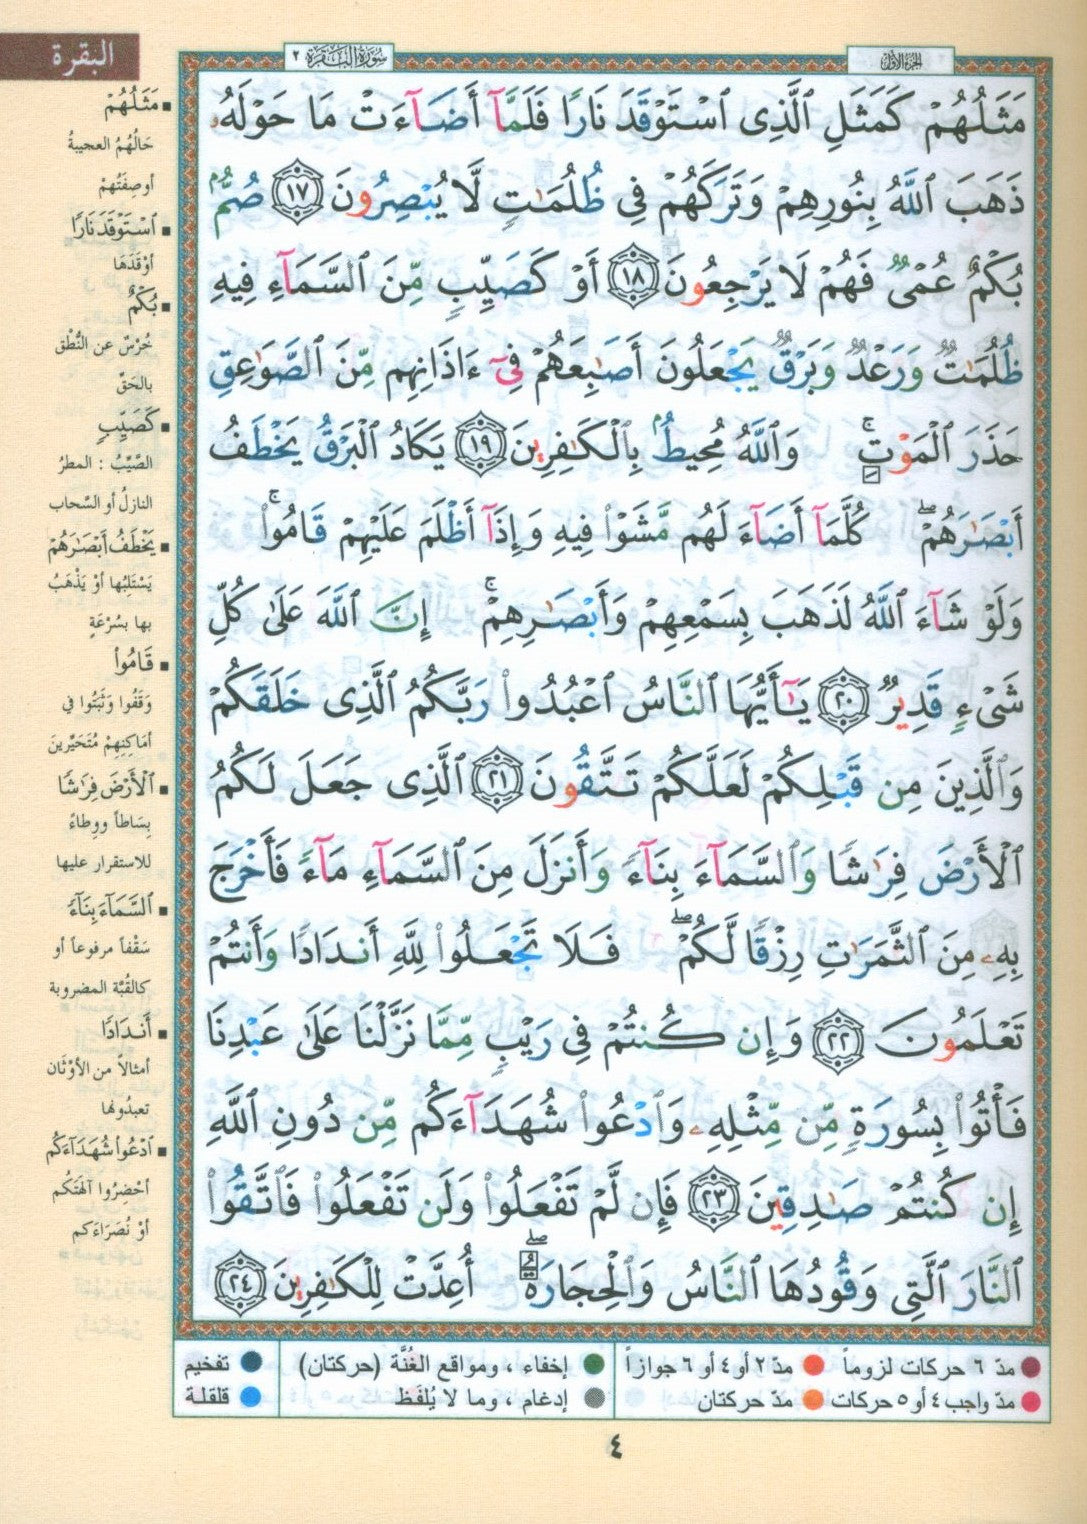 البقرة
سورة البقرة ٢
الجزء الأول
مَثَلُهُمْ كَمَثَلِ ٱلَّذِى ٱسْتَوْقَدَ نَارًا فَلَمَّآ أَضَآءَتْ مَا حَوْلَهُۥ
ذَهَبَ ٱللَّهُ بِنُورِهِمْ وَتَرَكَهُمْ فِى ظُلُمَـٰتٍ لَّا يُبْصِرُونَ ١٧ صُمٌّۢ
بُكْمٌ عُمْىٌ فَهُمْ لَا يَرْجِعُونَ ١٨ أَوْ كَصَيِّبٍ مِّنَ ٱلسَّمَآءِ فِيهِ
ظُلُمَـٰتٌ وَرَعْدٌ وَبَرْقٌ يَجْعَلُونَ أَصَـٰبِعَهُمْ فِىٓ ءَاذَانِهِم مِّنَ ٱلصَّوَٰعِقِ
حَذَرَ ٱلْمَوْتِ ۚ وَٱللَّهُ مُحِيطٌۢ بِٱلْكَـٰفِرِينَ ١٩ يَكَادُ ٱلْبَرْقُ يَخْطَفُ
أَبْصَـٰرَهُمْ ۖ كُلَّمَآ أَضَآءَ لَهُم مَّشَوْا۟ فِيهِ وَإِذَآ أَظْلَمَ عَلَيْهِمْ قَامُوا۟ ۚ
وَلَوْ شَآءَ ٱللَّهُ لَذَهَبَ بِسَمْعِهِمْ وَأَبْصَـٰرِهِمْ ۚ إِنَّ ٱللَّهَ عَلَىٰ كُلِّ
شَىْءٍ قَدِيرٌ ٢٠ يَـٰٓأَيُّهَا ٱلنَّاسُ ٱعْبُدُوا۟ رَبَّكُمُ ٱلَّذِى خَلَقَكُمْ
وَٱلَّذِينَ مِن قَبْلِكُمْ لَعَلَّكُمْ تَتَّقُونَ ٢١ ٱلَّذِى جَعَلَ لَكُمُ
ٱلْأَرْضَ فِرَٰشًا وَٱلسَّمَآءَ بِنَآءً وَأَنزَلَ مِنَ ٱلسَّمَآءِ مَآءً فَأَخْرَجَ
بِهِۦ مِنَ ٱلثَّمَرَٰتِ رِزْقًا لَّكُمْ ۖ فَلَا تَجْعَلُوا۟ لِلَّهِ أَندَادًا وَأَنتُمْ
تَعْلَمُونَ ٢٢ وَإِن كُنتُمْ فِى رَيْبٍ مِّمَّا نَزَّلْنَا عَلَىٰ عَبْدِنَا
فَأْتُوا۟ بِسُورَةٍ مِّن مِّثْلِهِۦ وَٱدْعُوا۟ شُهَدَآءَكُم مِّن دُونِ ٱللَّهِ
إِن كُنتُمْ صَـٰدِقِينَ ٢٣ فَإِن لَّمْ تَفْعَلُوا۟ وَلَن تَفْعَلُوا۟ فَٱتَّقُوا۟
ٱلنَّارَ ٱلَّتِى وَقُودُهَا ٱلنَّاسُ وَٱلْحِجَارَةُ ۖ أُعِدَّتْ لِلْكَـٰفِرِينَ ٢٤
مَثَلُهُمْ
حَالُهُمُ العجيبةُ
أو صِفَتُهمْ
ٱسْتَوْقَدَ نَارًا
أوْقَدَهَا
بُكْمٌ
خُرْسٌ عن النُّطْق
بالحَقّ
كَصَيِّبٍ
الصَّيِّبُ : المطرُ
النازلُ أو السَّحاب
يَخْطَفُ أَبْصَـٰرَهُمْ
يَسْتَلِبُها أوْ يَذْهَبُ
بها بسُرْعَةٍ
قَامُوا۟
وَقَفُوا وَثَبَتُوا في
أماكِنِهِمْ مُتَحَيِّرينَ
ٱلْأَرْضَ فِرَٰشًا
بِسَاطاً ووِطاءً
للاستقرار عليها
ٱلسَّمَآءَ بِنَآءً
سَقْفاً مرفوعاً أو
كالقُبَّة المضروبة
أَندَادًا
أمثالاً من الأوْثَان
تعبدُونها
ٱدْعُوا۟ شُهَدَآءَكُم
أحْضِرُوا آلهَتَكُم
أوْ نُصَرَاءَكم
مدّ ٦ حركات لزوماً
مدّ ٢ أو ٤ أو ٦ جوازاً
إخفاء ، ومواقع الغُنَّة (حركتان)
تفخيم
مدّ واجب ٤ أو ٥ حركات
مدّ حركتان
إدغام ، وما لا يُلفَظ
قلقلة
٤